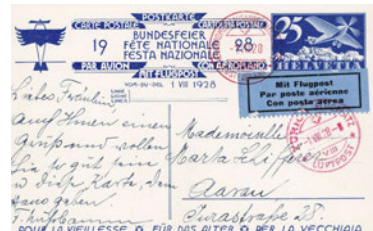 POSTKARTE
CARTE POSTALE CARTOLINA POSTALE
BUNDESFEIER
19 FÊTE NATIONALE 28
FESTA NAZIONALE
PAR AVION CON AEROPLANO
MIT FLUGPOST
VOR-DU-DEL 1 VIII 1928
25
HELVETIA
Mit Flugpost
Par poste aérienne
Con posta aerea
LUFTPOST
Liebes Fräulein
Ihnen einen
Gruß und wollen
Sie so gut sein
diese Karte, dem
geben.
Mademoiselle
Marta
Aarau
Jurastraße 28.
POUR LA VIEILLESSE FÜR DAS ALTER PER LA VECCHIAIA